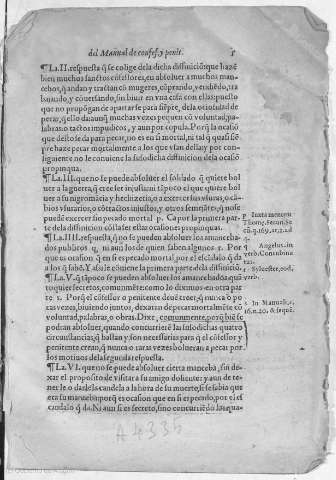 del Manual de confes. y penit. 5
¶ La.II. respuesta q̃ se colige dela dicha diffinició: que hazē
bien muchos sanctos cófessores, en absoluer a muchos man-
cebos, q̃ andan y tractan có mugeres, cóprando, y vēdiēdo, tra
bajando, y cóuersando, sin biuir en vna casa con ellas: puesto
que no propógan de apartarse para siēpre, dela ociosidad de
pecar, q̃llo da: aunq̃ muchas vezes pequen có voluntad, pa
labras o tactos impudicos, y aun por copula. Porq̃ la ocasió
que desto seda para pecar, no es en si mortal, ni tal q̃ quasi siē
pre haze pecar mortalmente a los que vsan della: y por con-
siguiente no le conuiene la susodicha diffinicion dela ocasió
propinqua.
¶ La.III. que no se puede absoluer el soldado q̃ quiere boluer
a la guerra, q̃ cree ser injusta: ni tápoco el que quiere boluer
a su nigromácia y hechizeria, o a exercer sus vsuras, o cá-
bios vsurarios, o tractos injustos, y otros semejátes, q̃ no se
puedē exercer sin pecado mortal p. Ca por la primera par-
te dela diffinicion cósta ser estas ocasiones propinquas.
¶ La.IIII. respuesta, q̃ no se pueden absoluer los amanceba-
dos publicos q, ni aun los de quien saben algunos r. Por
que es ocasion q̃ en si es pecado mortal, por el escádalo q̃ da
a los q̃ sabē. Y assi le cóuiene la primera parte dela diffinició.
¶ La.V. q̃ tápoco se pueden absoluer los amancebados aquē
to quier secretos, comunmēte: como lo diximos en otra par
te s. Porq̃ el cófessor o penitente deuē creer, q̃ nunca o po
cas vezes, biuiendo juntos, dexaran de pecar mortalmēte có
voluntad, palabras, o obras. Dixe, comunmente, porq̃ biē se
podran absoluer, quando concurrierē las susodichas quatro
circunstácias, q̃ bastan y son necessarias para q̃ el cófessor y
penitente crean, q̃ nunca o raras vezes boluerán a pecar por
los motiuos dela segunda respuesta.
¶ La.VI. que no se puede absoluer cierta manceba, sin de-
xar el proposito de visitar a su amigo doliente: y aun de te-
ner le o darle la candela a la hora de su muerte, si se sabia que
era su manceba: porq̃ es ocasion que en si es pecado, por el es-
candalo q̃ da. Ni aun si es secreto, sino concurriēdo las qua-
p Iuxta mentem
Thomę. Secun. Se
cũ. q. 169. ar. 2. ad
4.
q Angelus. in
verb. Concubina
tus.
r Syluester, eod.
verb.
s In Manuali. c.
16. n. 20. & seque.
A 4335